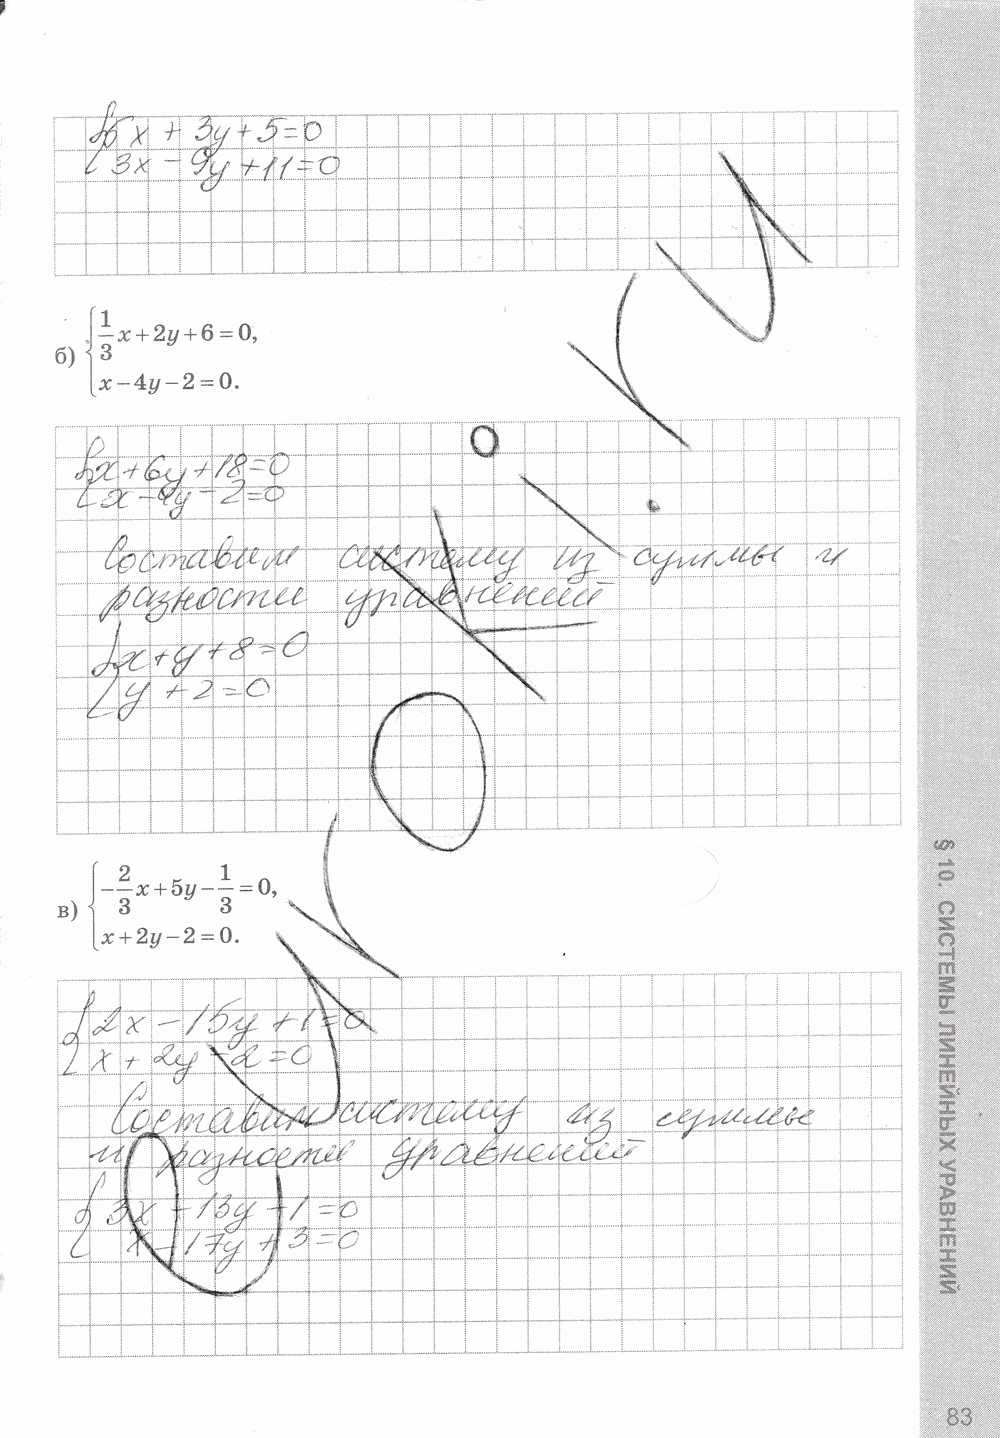 { 5x + 3y + 5 = 0
3x − 9y + 11 = 0
б) { 1/3 x + 2y + 6 = 0,
x − 4y − 2 = 0.
{ x + 6y + 18 = 0
x − 4y − 2 = 0
Составим систему из суммы и
разности уравнений
{ x + y + 8 = 0
y + 2 = 0
в) { −2/3 x + 5y − 1/3 = 0,
x + 2y − 2 = 0.
{ 2x − 15y + 1 = 0
x + 2y − 2 = 0
Составим систему из суммы
и разности уравнений
{ 3x − 13y − 1 = 0
x − 17y + 3 = 0
§ 10. СИСТЕМЫ ЛИНЕЙНЫХ УРАВНЕНИЙ
83